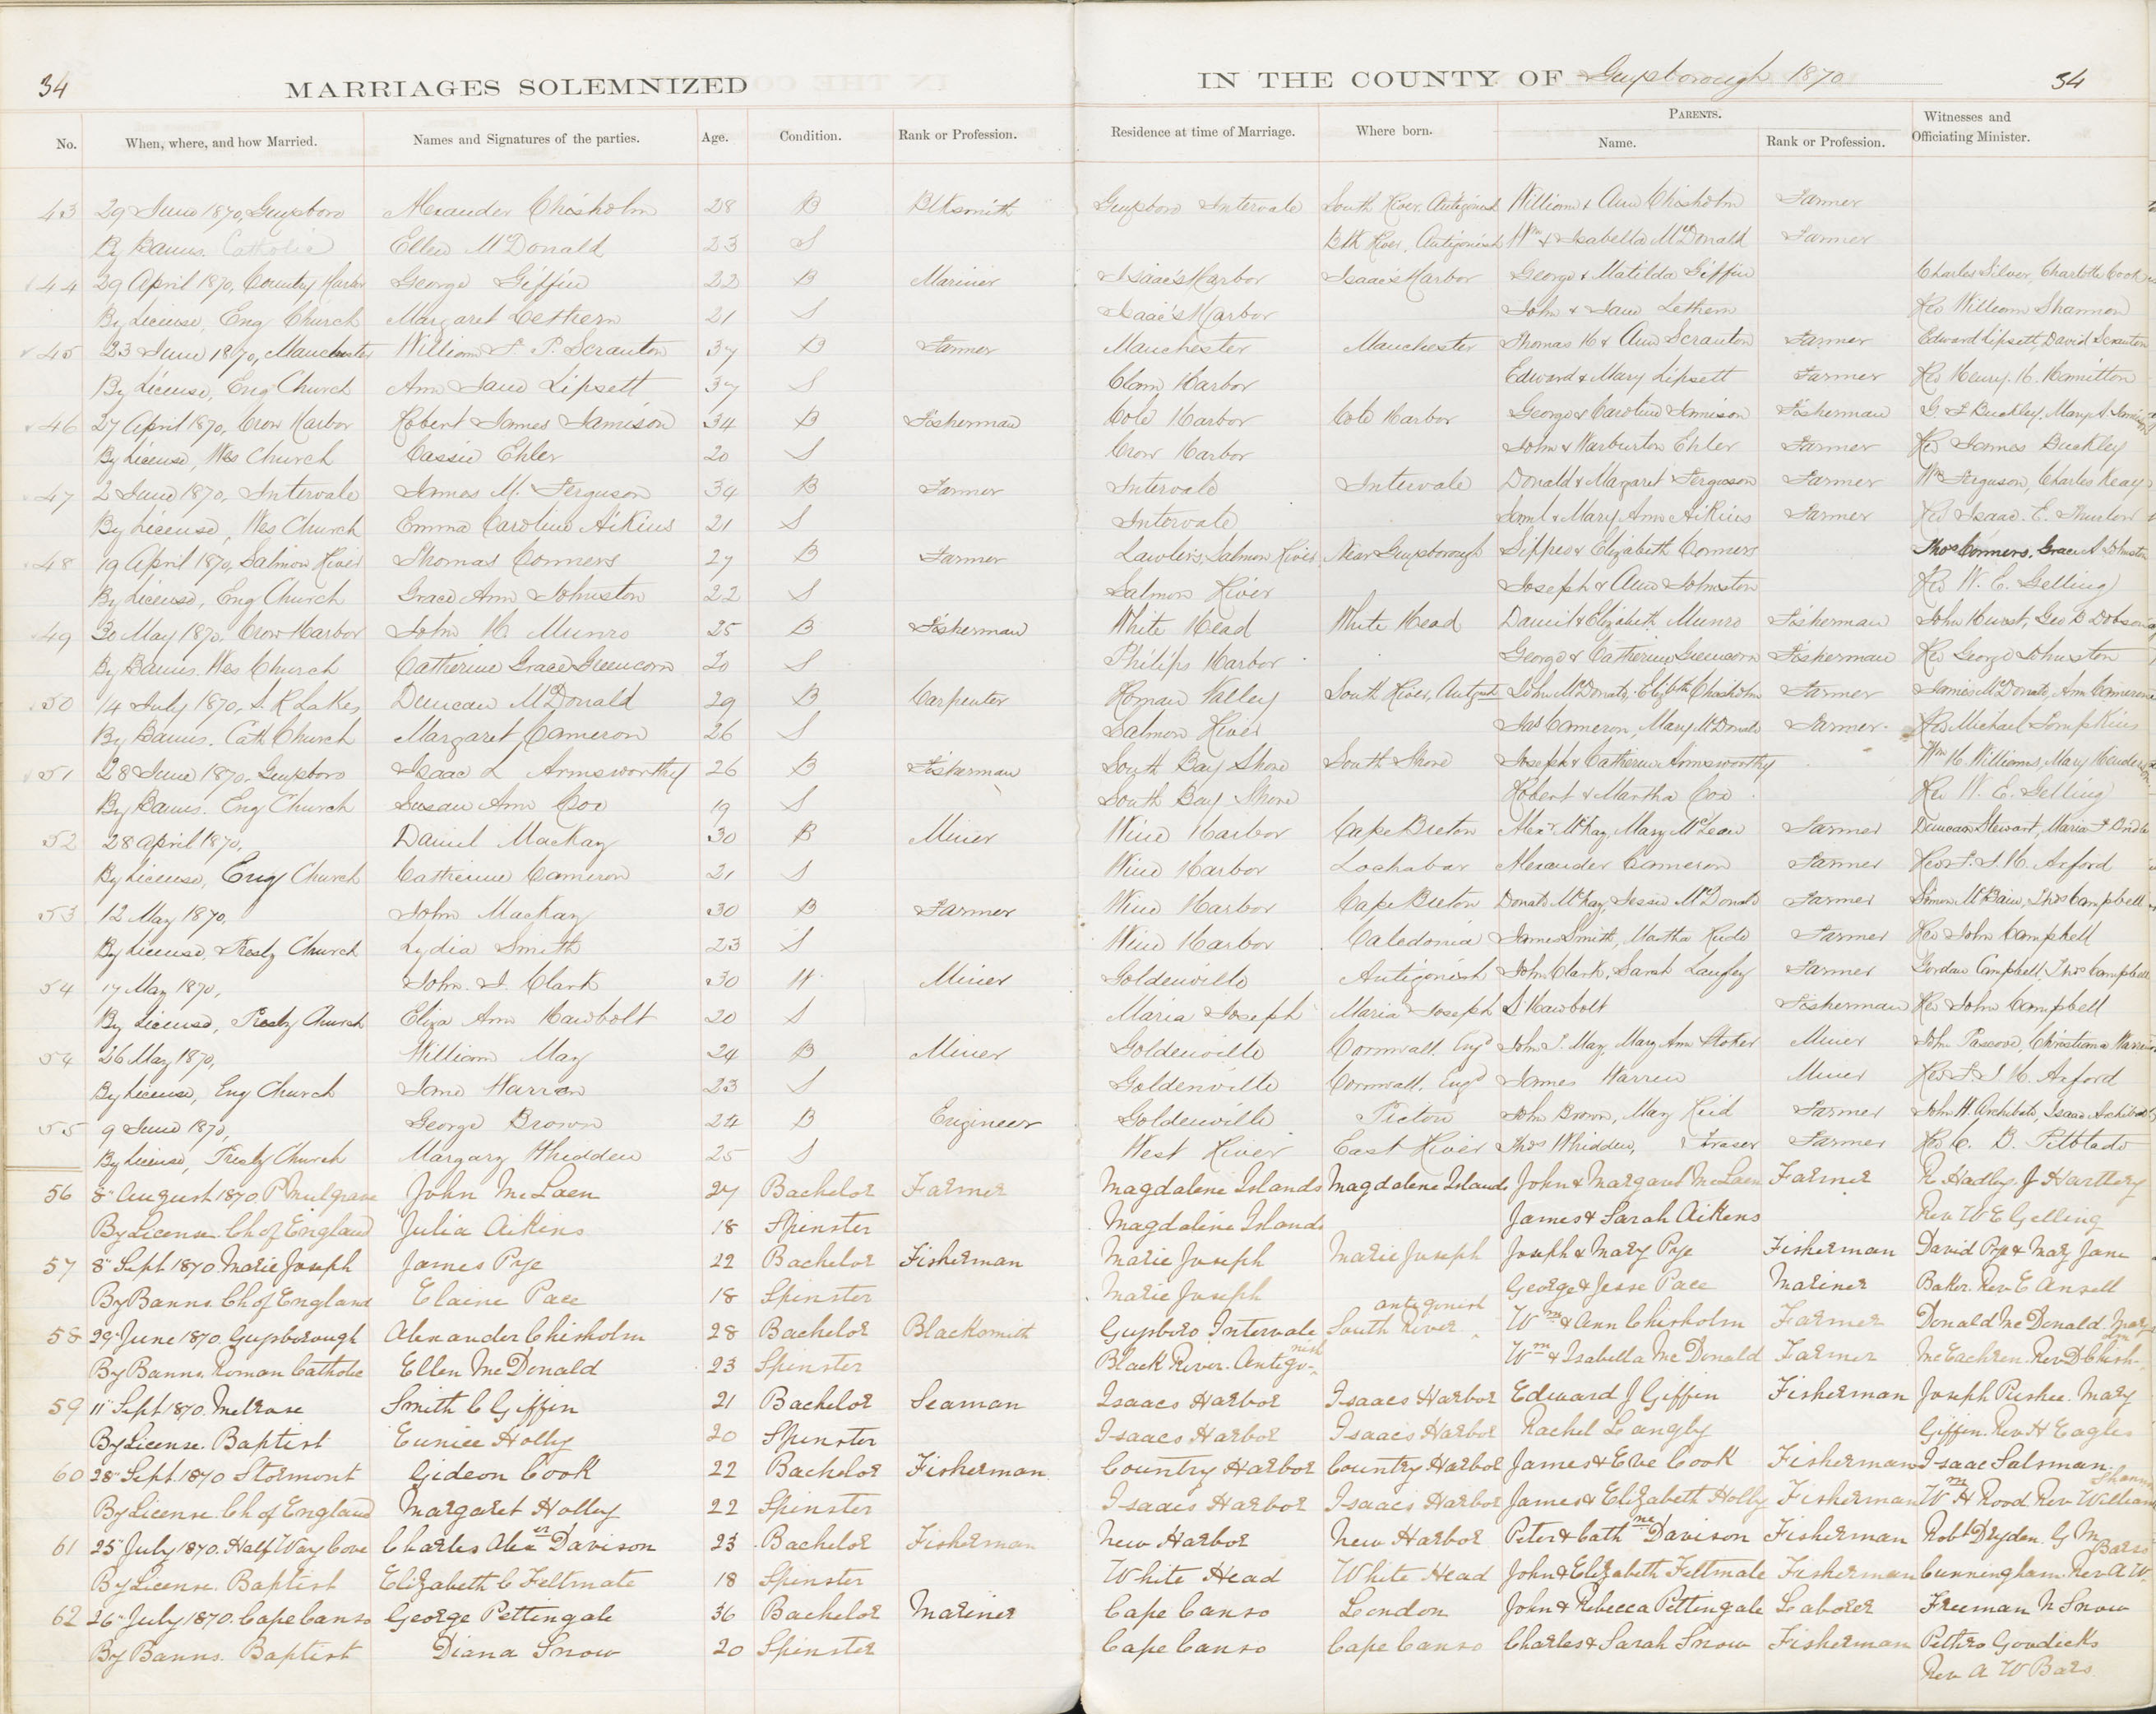 34 MARRIAGES SOLEMNIZED IN THE COUNTY OF Guysborough 1870 34
No. When, where, and how Married. Names and Signatures of the parties. Age. Condition. Rank or Profession. Residence at time of Marriage. Where born. PARENTS. Name. Rank or Profession. Witnesses and Officiating Minister.
43 29 June 1870, Guysboro Alexander Chisholm 28 B Blksmith Guysboro Intervale South River, Antigonish William & Ann Chisholm Farmer
By Banns. Catholic Ellen McDonald 23 S Blk River, Antigonish Wm & Isabella McDonald Farmer
44 29 April 1870, Country Harbor George Giffin 22 B Mariner Isaac's Harbor Isaac's Harbor George & Matilda Giffin Charles Silver, Charlotte Cook
By License, Eng Church Margaret Lethern 21 S Isaac's Harbor John & Jane Lethern Rev William Shannon
45 23 June 1870, Manchester William F. P. Scranton 37 B Farmer Manchester Manchester Thomas H & Ann Scranton Farmer Edward Lipsett, David Scranton
By License, Eng Church Ann Jane Lipsett 37 S Clam Harbor Edward & Mary Lipsett Farmer Rev Henry. H. Hamilton
46 27 April 1870, Crow Harbor Robert James Jamison 34 B Fisherman Cole Harbor Cole Harbor George & Caroline Jamison Fisherman G F Buckley, Mary A Jamison
By License, Wes Church Cassie Ehler 20 S Crow Harbor John & Warburton Ehler Farmer Rev James Buckley
47 2 June 1870, Intervale James M. Ferguson 34 B Farmer Intervale Intervale Donald & Margaret Ferguson Farmer Wm Ferguson, Charles Keay
By License, Wes Church Emma Caroline Aikins 21 S Intervale Saml & Mary Ann Aikins Farmer Rev Isaac. E. Thurlow
48 19 April 1870, Salmon River Thomas Conners 27 B Farmer Lawlers, Salmon River Near Guysborough Sippeo & Elizabeth Conners Thos Conners. Grace A Johnston
By License, Eng Church Grace Ann Johnston 22 S Salmon River Joseph & Ann Johnston Rev W. E. Gelling
49 30 May 1870. Crow Harbor John H. Munro 25 B Fisherman White Head White Head Daniel & Elizabeth Munro Fisherman John Hurst, Geo B Dobson
By Banns. Wes Church Catherine Grace Greencorn 20 S Philips Harbor George & Catherine Greencorn Fisherman Rev George Johnston
50 14 July 1870, S. R Lakes Duncan McDonald 29 B Carpenter Roman Valley South River, Antgsh John McDonald, Elizbth Chisholm Farmer James McDonald, Ann Cameron
By Banns. Cath Church Margaret Cameron 26 S Salmon River Jas Cameron, Mary McDonald Farmer Rev Michael Tompkins
51 28 June 1870. Guysboro Isaac L Armsworthy 26 B Fisherman South Bay Shore South Shore Joseph & Catherine Armsworthy Wm H. Williams, Mary
By Banns. Eng Church Susan Ann Cox 19 S South Bay Shore Robert & Martha Cox Rev W. E. Gelling
52 28 April 1870, Daniel MacKay 30 B Miner Wine Harbor Cape Breton Alexr McKay, Mary McLean Farmer Duncan Stewart, Maria F
By License, Eng Church Catherine Cameron 21 S Wine Harbor Lochabar Alexander Cameron Farmer Rev F. J. H. Axford
53 12 May 1870, John MacKay 30 B Farmer Wine Harbor Cape Breton Donald McKay, Jessie McDonald Farmer Simon McBain, Thos Campbell
By License, Presby Church Lydia Smith 23 S Wine Harbor Caledonia James Smith, Martha Farmer Rev John Campbell
54 17 May 1870, John. J. Clark 30 W. Miner Goldenville Antigonish John Clark, Sarah Langley Farmer Gordon Campbell, Thos Campbell
By License, Presby Church Eliza Ann Hawbolt 20 S Maria Joseph Maria Joseph S Hawbolt Fisherman Rev John Campbell
54 26 May 1870, William May 24 B Miner Goldenville Cornwall, Engd John S. May, Mary Ann Stoker Miner John Pascove, Christiana Warren
By License, Eng Church Jane Warren 23 S Goldenville Cornwall, Engd James Warren Miner Rev F. J. H. Axford
55 9 June 1870, George Brown 24 B Engineer Goldenville Pictou John Brown, May Reid Farmer John W. Archibald, Isaac Archibald
By License, Presby Church Margary Whidden 25 S West River East River Thos Whidden, Fraser Farmer Rev C. B. Pitblado
56 8" August 1870. P Mulgrave John McLaen 27 Bachelor Farmer Magdalene Islands Magdalene Islands John & Margaret McLaen Farmer R Hadley. J Hartley
By License. Ch of England Julia Aikins 18 Spinster Magdaline Islands James & Sarah Aikens Rev W E Gelling
57 8" Sept 1870 Marie Joseph James Pye 22 Bachelor Fisherman Marie Joseph Marie Joseph Joseph & Mary Pye Fisherman David Pye & Mary Jane
By Banns. Ch of England Elaine Pace 18 Spinster Marie Joseph George & Jesse Pace Mariner Baker. Rev E Ansell
58 29" June 1870. Guysborough Alexander Chisholm 28 Bachelor Blacksmith Guysboro Intervale South River antigonish Wm & Ann Chisholm Farmer Donald McDonald. Mary
By Banns. Roman Catholic Ellen McDonald 23 Spinster Black River. Antigonish Wm & Isabella McDonald Farmer McEachren. Rev D Chisholm
59 11" Sept 1870. Melrose Smith C Giffin 21 Bachelor Seaman Isaacs Harbor Isaacs Harbor Edward J Giffin Fisherman Joseph Pushee. Mary
By License. Baptist Eunice Holly 20 Spinster Isaacs Harbor Isaacs Harbor Rachel Langly Giffin. Rev H Eagles
60 28" Sept. 1870 Stormont Gideon Cook 22 Bachelor Fisherman Country Harbor Country Harbor James & Eve Cook Fisherman Isaac Salsman.
By License. Ch of England Margaret Holley 22 Spinster Isaacs Harbor Isaacs Harbor James & Elizabeth Holly Fisherman Wm H Rood Rev William Shann
61 25" July 1870. Half Way Cove Charles Alexr Davison 23 Bachelor Fisherman New Harbor New Harbor Peter & Cathne Davison Fisherman Robt Dryden. G M
By License. Baptist Elizabeth C Feltmate 18 Spinster White Head White Head John & Elizabeth Feltmate Fisherman Cunningham. Rev A W. Barss
62 26" July 1870. Cape Canso George Pettingale 36 Bachelor Mariner Cape Canso London John & Rebecca Pettingale Laborer Freeman N Snow
By Banns. Baptist Diana Snow 20 Spinster Cape Canso Cape Canso Charles & Sarah Snow Fisherman Pethro Goodicks
Rev A W Bars